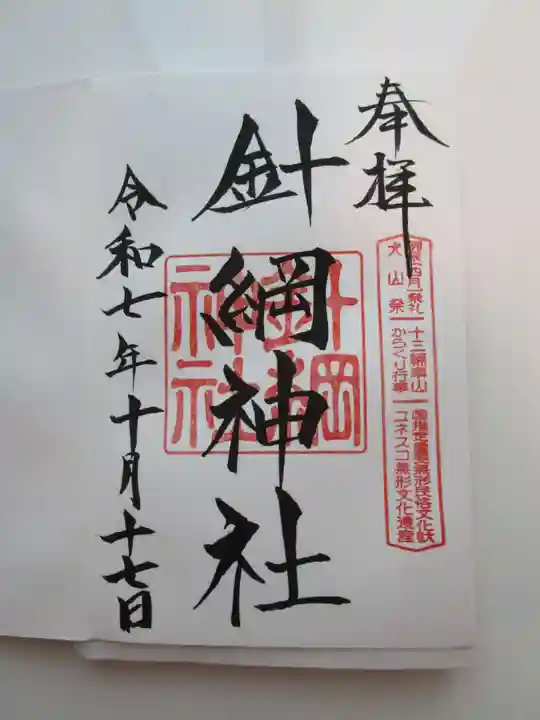 奉拝
例祭(四月)祭礼
犬山祭
十三輌車山
からくり行事
国指定重要無形民俗文化財
ユネスコ無形文化遺産
針綱神社
針綱
神社
令和七年十月十七日